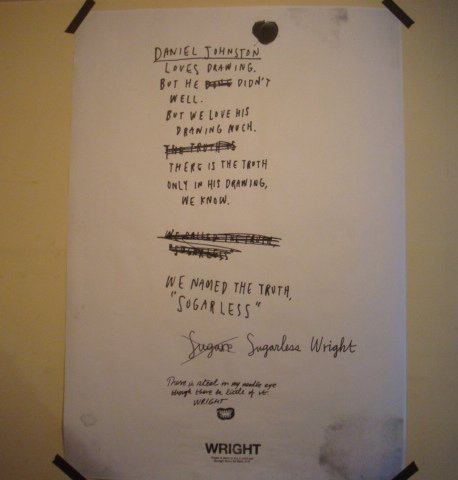 DANIEL JOHNSTON
LOVES DRAWING.
BUT HE DIDN'T
WELL.
BUT WE LOVE HIS
DRAWING MUCH.
THE TRUTH IS
THERE IS THE TRUTH
ONLY IN HIS DRAWING,
WE KNOW.
WE CALLED THE TRUTH
"SUGARLESS"
WE NAMED THE TRUTH,
"SUGARLESS"
Sugare Sugarless Wright
There is steel in my needle eye
though there be little of it.
WRIGHT
WRIGHT